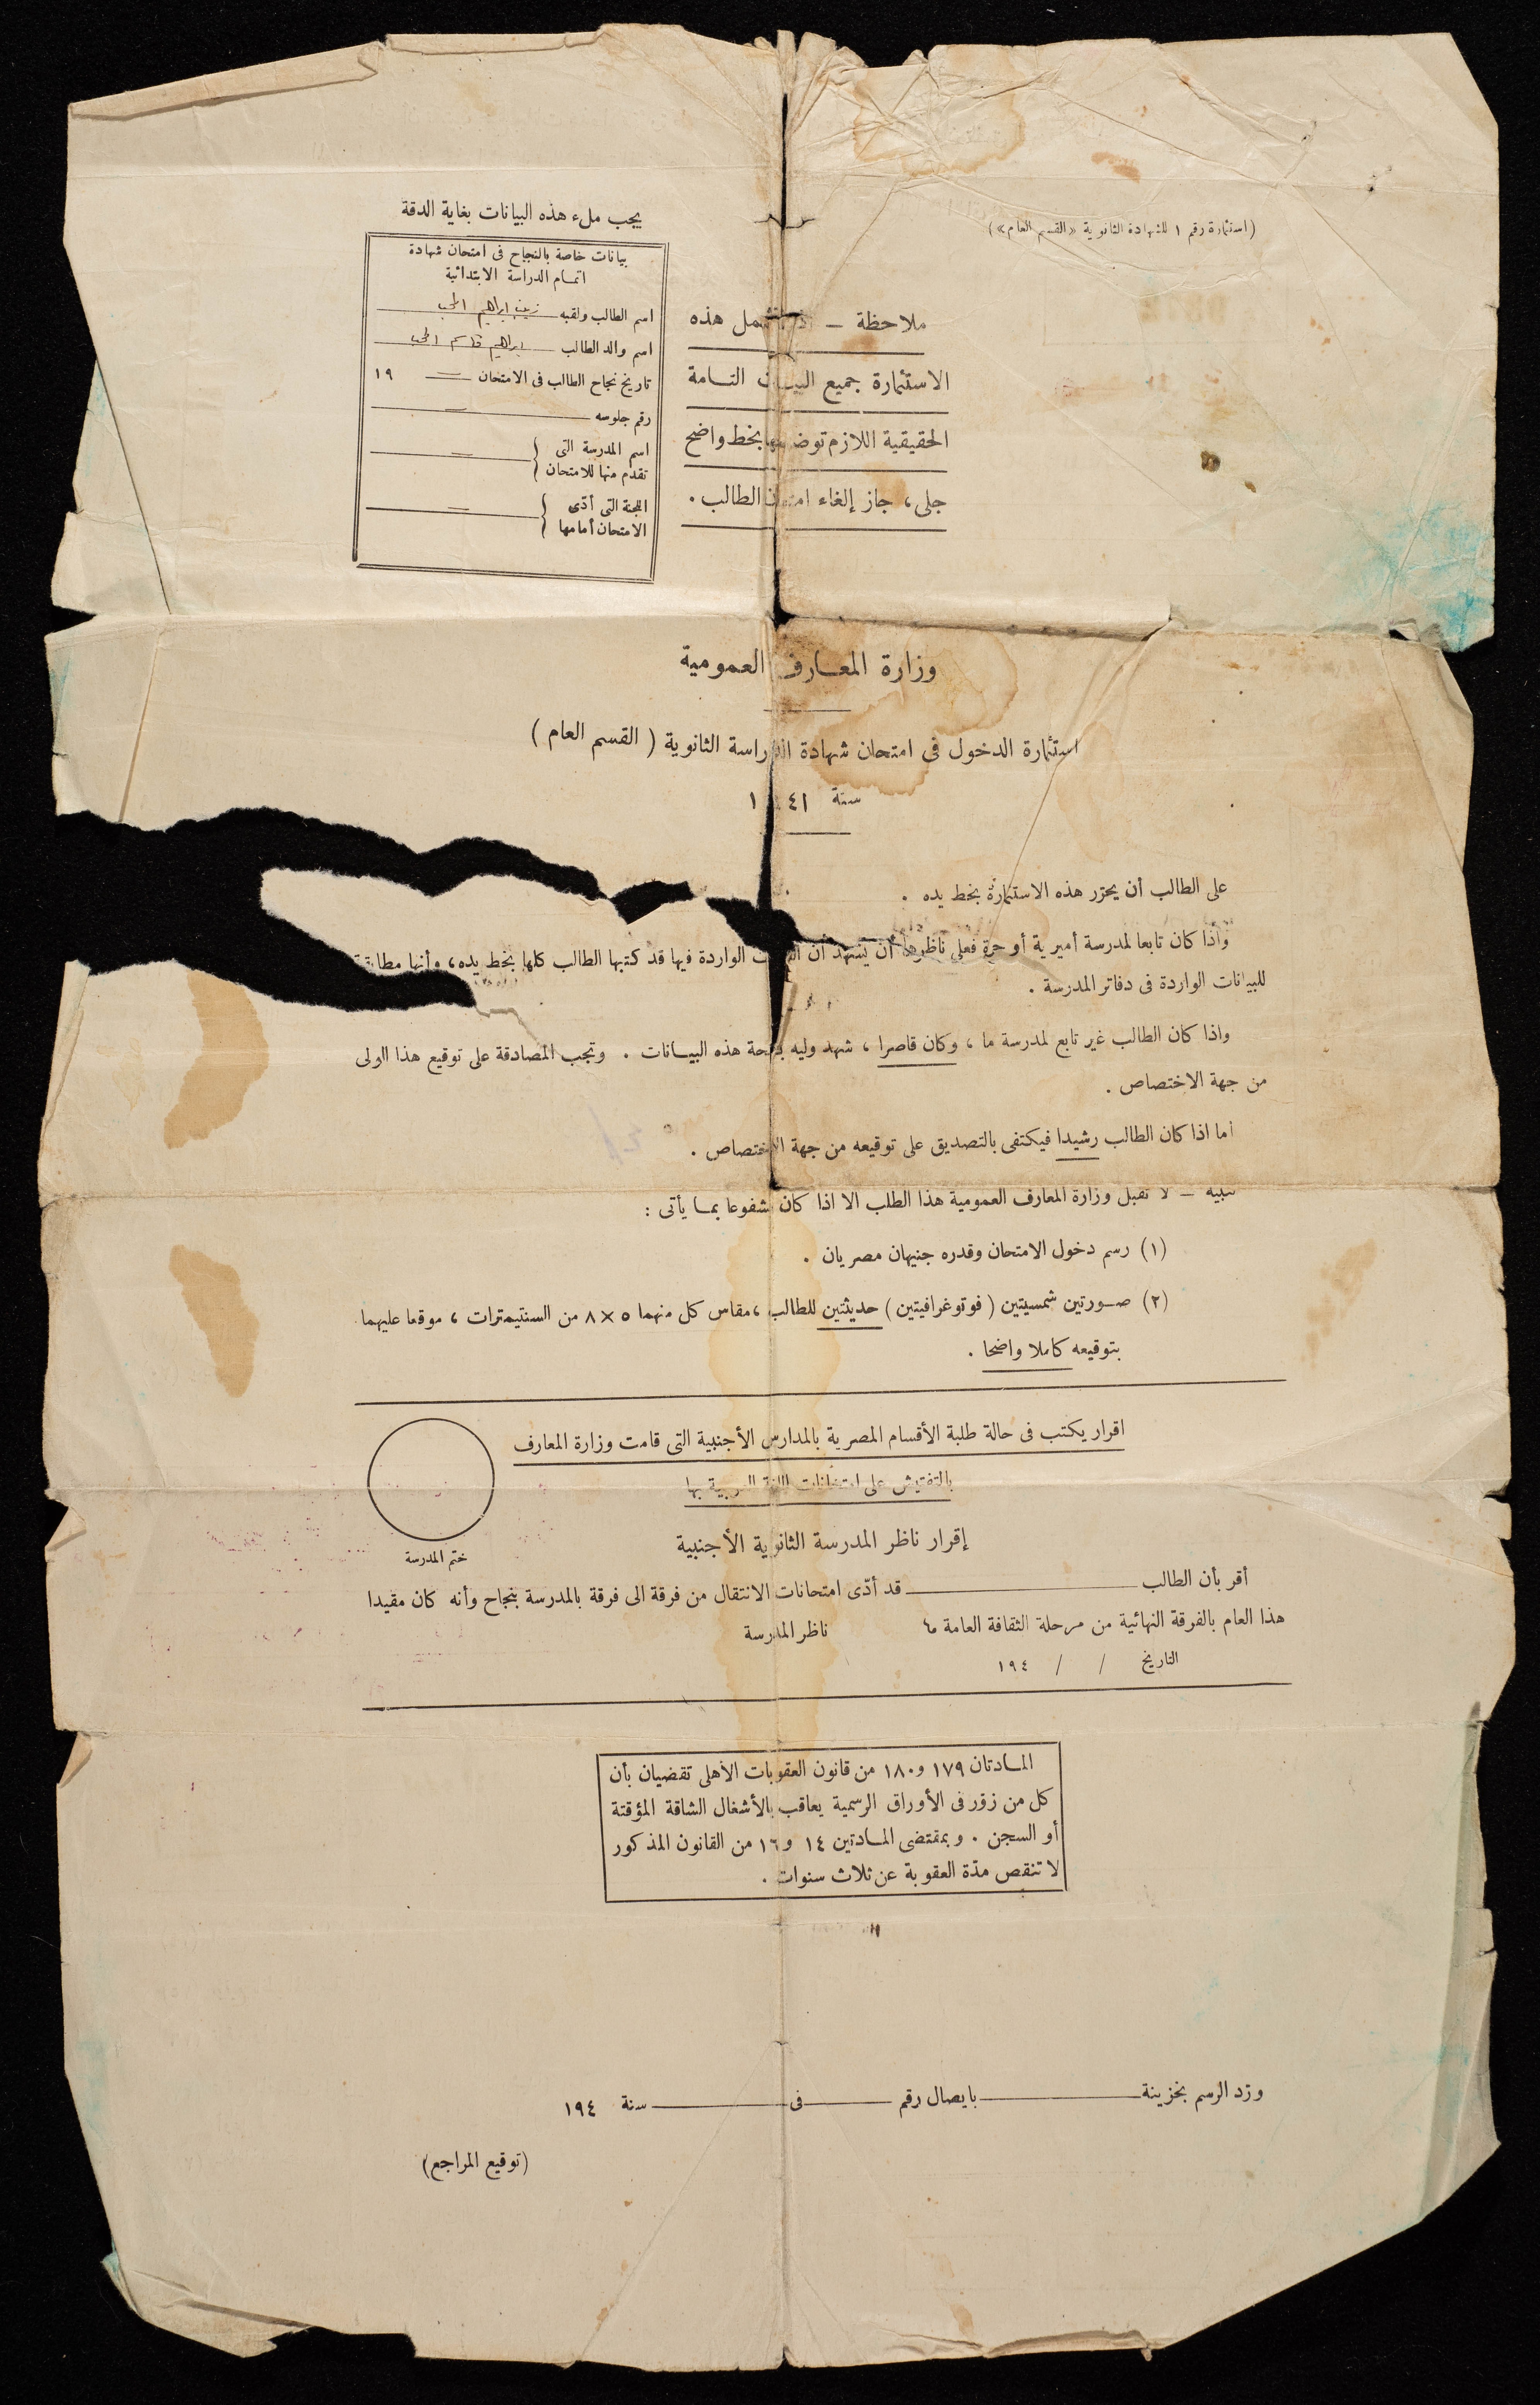 (استمارة رقم ١ للشهادة الثانوية «القسم العام»)
يجب ملء هذه البيانات بغاية الدقة
بيانات خاصة بالنجاح فى امتحان شهادة
اتمام الدراسة الابتدائية
اسم الطالب ولقبه زينب ابراهيم
اسم والد الطالب ابراهيم قاسم
تاريخ نجاح الطالب فى الامتحان — ١٩
رقم جلوسه —
اسم المدرسة التى
تقدم منها للامتحان —
اللجنة التى أدّى
الامتحان أمامها —
ملاحظة – تشمل هذه
الاستمارة جميع البيانات التامة
الحقيقية اللازم توضيحها بخط واضح
جلى، جاز إلغاء امتحان الطالب .
وزارة المعارف العمومية
استمارة الدخول فى امتحان شهادة الدراسة الثانوية ( القسم العام )
سنة ١٩٤١
على الطالب أن يحرّر هذه الاستمارة بخط يده .
وأذا كان تابعا لمدرسة أميرية أو حرة فعلى ناظرها أن يشهد أن البيانات الواردة فيها قد كتبها الطالب كلها بخط يده، وأنها مطابقة
للبيانات الواردة فى دفاتر المدرسة .
واذا كان الطالب غير تابع لمدرسة ما ، وكان قاصرا ، شهد وليه بصحة هذه البيانات . وتجب المصادقة على توقيع هذا الولى
من جهة الاختصاص .
أما اذا كان الطالب رشيدا فيكتفى بالتصديق على توقيعه من جهة الاختصاص .
تنبيه – لا تقبل وزارة المعارف العمومية هذا الطلب الا اذا كان مشفوعا بما يأتى :
(١) رسم دخول الامتحان وقدره جنيهان مصريان .
(٢) صورتين شمسيتين (فوتوغرافيتين) حديثتين للطالب ، مقاس كل منهما ٥ × ٨ من السنتيمترات ، موقعا عليهما
بتوقيعه كاملا واضحا .
اقرار يكتب فى حالة طلبة الأقسام المصرية بالمدارس الأجنبية التى قامت وزارة المعارف
بالتفتيش على امتحانات اللغة العربية بها
ختم المدرسة
إقرار ناظر المدرسة الثانوية الأجنبية
أقر بأن الطالب قد أدّى امتحانات الانتقال من فرقة الى فرقة بالمدرسة بنجاح وأنه كان مقيدا
هذا العام بالفرقة النهائية من مرحلة الثقافة العامة ما ناظر المدرسة
التاريخ / / ١٩٤
المادتان ١٧٩ و١٨٠ من قانون العقوبات الأهلى تقضيان بأن
كل من زوّر فى الأوراق الرسمية يعاقب بالأشغال الشاقة المؤقتة
أو السجن . وبمقتضى المادتين ١٤ و١٦ من القانون المذكور
لا تنقص مدّة العقوبة عن ثلاث سنوات .
ورَد الرسم بخزينة بايصال رقم فى سنة ١٩٤
(توقيع المراجع)